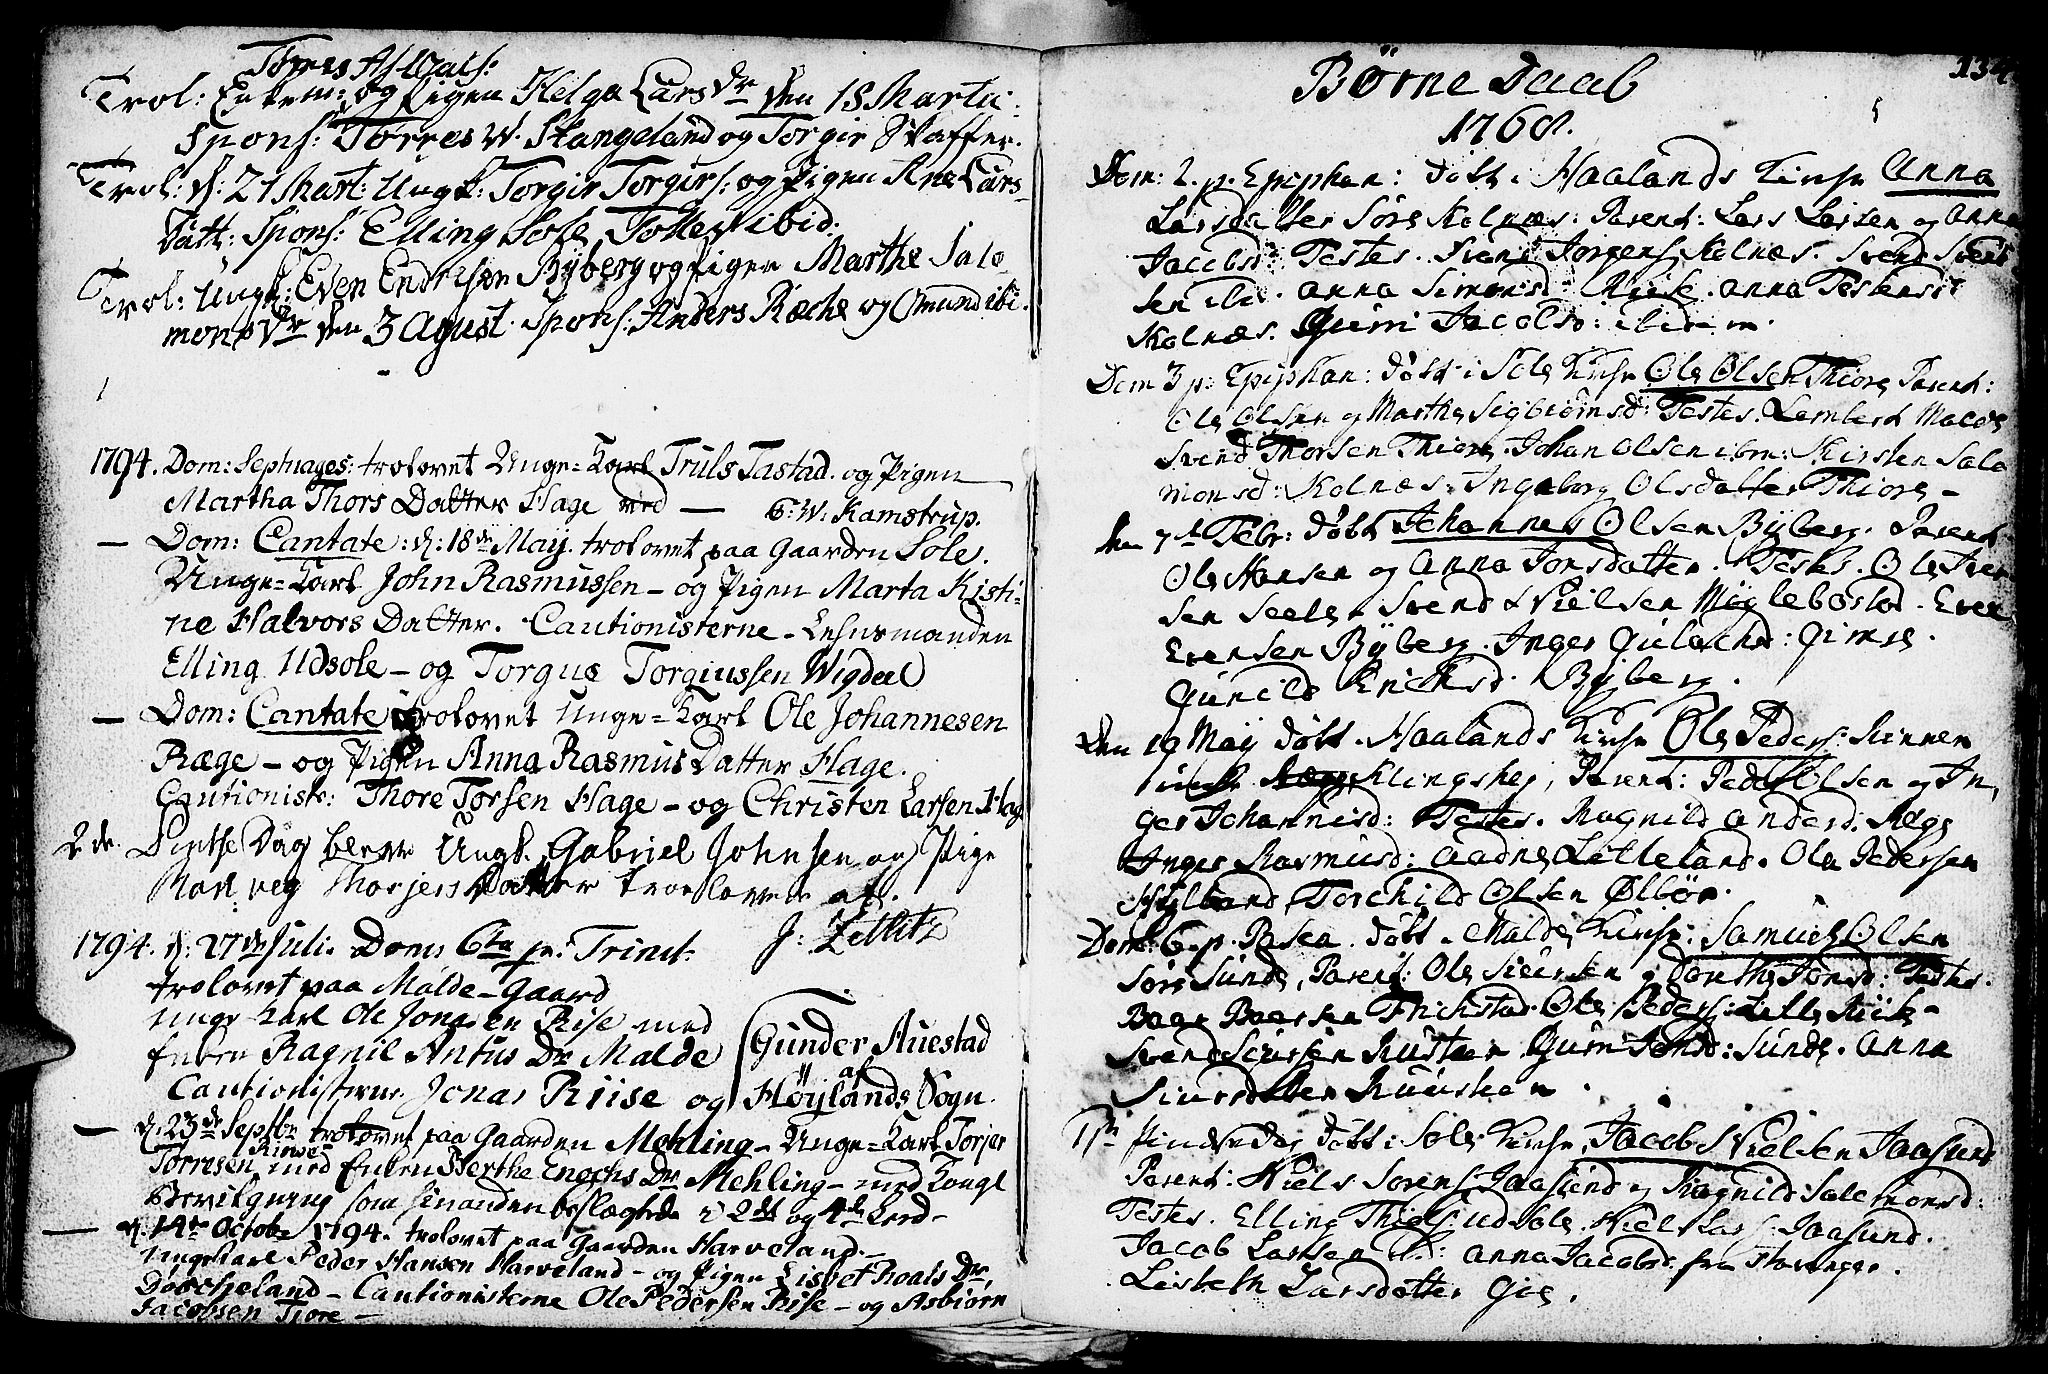 Tørres Asvals:
Trol: Enkem: og Pigen Helga Lars Dr den 18 Martii.
Spons: Tørres W. Stangeland og Torgir Skaffer.
Trol: d: 21 Mart: Ungk: Torgir Torgirs: og Pigen Ane Lars
Datt: Spons: Elling Sole, Tollef ibid:
Trol: Ungk: Even Endresen Byberg og Pigen Marthe Salo
mons Dr den 3 Agust. Spons: Anders Ræche og Omund ibi.
1794. Dom: Septuages: trolovet Unge=Karl Truls Tastad og Pigen
Martha Thors Datter Hage ved — C: W: Kamstrup.
— Dom: Cantate: d: 18de Maij trolovet paa Gaarden Sole.
Unge=Karl John Rasmussen – og Pigen Marta Kisti=
ne Halvors Datter. Cautionisterne – Lehnsmanden
Elling Udsole – og Torgus Torgiussen Wigdeel
— Dom: Cantate trolovet Unge=Karl Ole Johannesen
Ræge – og Pigen Anna Rasmus Datter Hage.
Cautionist: Thore Torsen Hage – og Christen Larsen Hag
2de. Pintse Dag blew Ungk. Gabriel Johnsen og Pige
Thorjers Datter troelovede af.
J: Zetlitz
1794. d: 27de Juli. Dom: 6ta p: Trinit.
trolovet paa Malde-Gaard
unge Karl Ole Jonasen Rise med
Enken Ragnil Antus Dr Malde
Cautionisterne Jonas Riise og Gunder Auestad
af Höylands Sogn.
— d: 23de Septbr trolovet paa Gaarden Mehling – Unge=Karl Torjer
Torresen med Enken Berthe Enochs Dr Mehling – med Kongl
Bevilgning som hinanden beslægtede i 2det og 4de Leed –
— d: 14de Octobr 1794. trolovet paa Gaarden Harveland –
ungekarl Peder Hansen Harveland – og Pigen Lisbet Roals Dr.
– Cautionisterne Ole Pedersen Riise – og Asbiørn
Jacobsen Tjore –
134
Børne Daab
1768.
Dom: 2. p. Epiphan: døbt i Haalands Kirke Anna
Larsdatter Søre Kolnæs: Parent: Lars Larsen og Anna
Jacobsd: Testes. Svend Jørgens Kolnæs. Svend Svend
sen ibi. Anna Simonsd: Anna Testensd:
Kolnæs. Guri Jacobsd: ibidem.
Dom 3 p: Epiphan: døbt i Sole Kirke Ole Olsen Thiore Parent:
Ole Olsen og Marthe Sigbiørnsd: Testes. Lambert Malde
Svend Thorsen Thiore. Johan Olsen ibm: Kirsten Salo
monsd: Kolnæs. Ingeborg Olsdatter Thiore –
den 7de Febr: døbt Johannes Olsen Byberg. Parent
Ole Hansen og Anna Jonsdatter. Testes. Ole Iver
sen Seele. Svend Nielsen Miglebostad. Even
Evensen Byberg. Inger Gimre.
Gunild Erichsd. Byberg.
Den 19 Maij døbt. Haalands Kirke Ole Peders:
Klingshej, Parent: Peder Olsen og In,
ger Johannisd: Testes. Ragnild Andersd: Ræge
Inger Rasmusd: Aadne Litleland. Ole Pedersen
Torchild Olsen Ølbør.
Dom: 6. p. Pasca. døbt. Malde Kirke: Samuel Olsen
Søre Sunde, Parent: Ole Siursen og Dorethe Jonsd: Testes.
Baar Baarsen Frichstad. Ole Peders: Lille
Svend Siursen Guri Jonsd: Sunde. Anna
Siursdatter
Pindsedag døbt i Sole Kirke Jacob Nielsen Jaasund
Parent: Niels Sørens: Jaasund og Ragnild Salomonsd:
Testes. Elling Udsole. Niel Lars: Jaasund.
Jacob Larsen ib: Anna Jacobsd. fra Stavanger.
Lisbeth Larsdatter